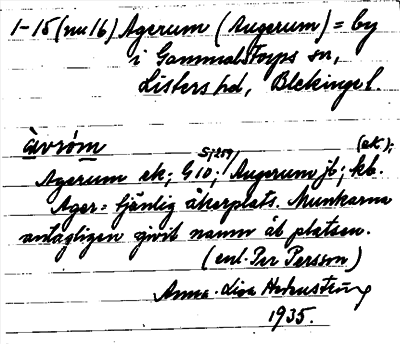 1-15 (nu 16) Agerum (Augerum) = by
i Gammalstorps sn,
Listers hd, Blekinge l.
àvróm (ek);
Agerum ek; G10; Augerum jb; kb.
Ager = tjänlig åkerplats. Munkarna
antagligen givit namn åt platsen.
(enl. Per Persson)
Anna-Lisa
1935.